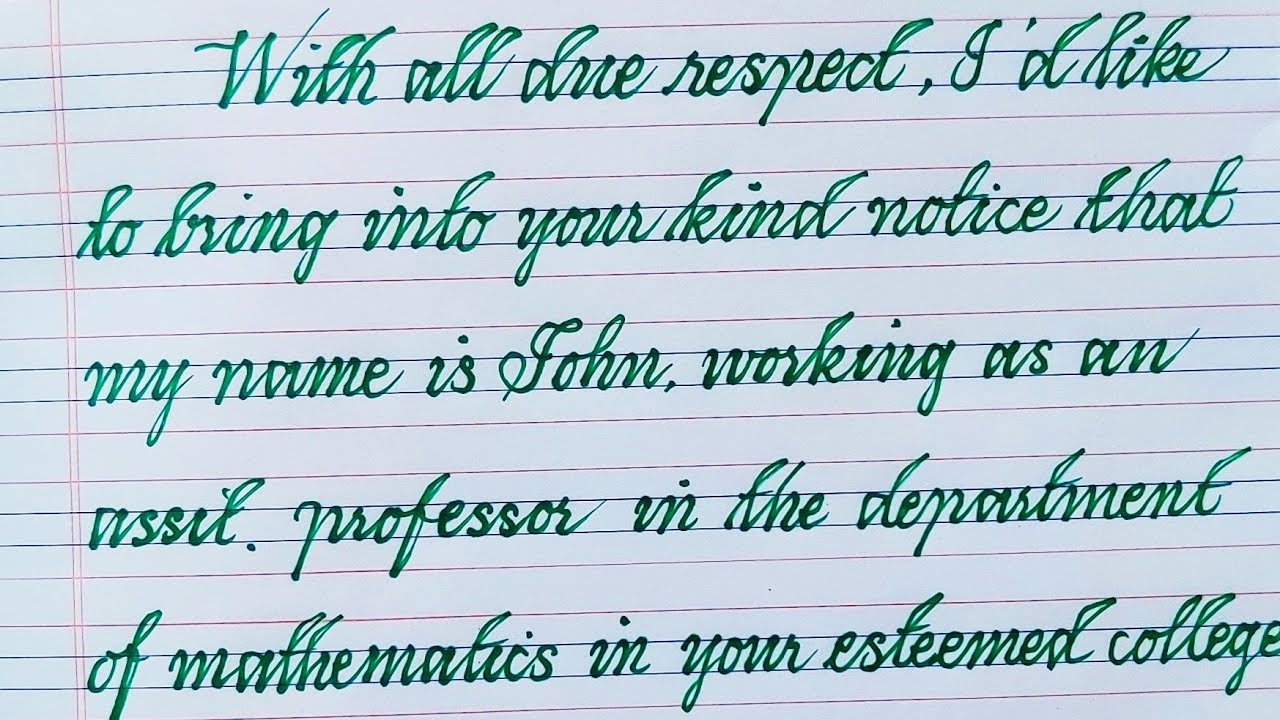 With all due respect, I'd like
to bring into your kind notice that
my name is John, working as an
assit. professor in the department
of mathematics in your esteemed college